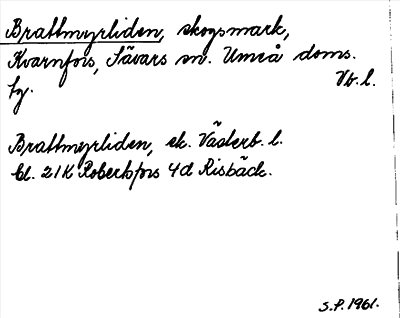 Brattmyrliden, skogsmark,
Kvarnfors, Sävars sn. Umeå doms.
fg. Vb. l.
Brattmyrliden, ek. Väderb. l.
bl. 21K Robertsfors 4d Risbäck.
S.P. 1961.